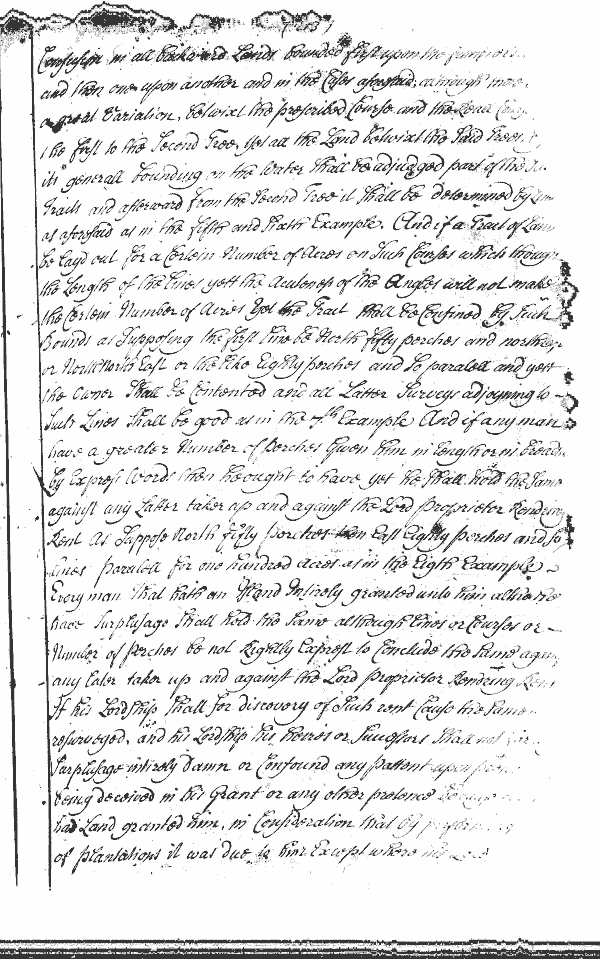 Confusion in all backward Lands bounded first upon the
and then one upon another and in the Cases aforesaid, although
a great Variation, betwixt the prescribed Course and the Reall
the first to the Second Tree, yet all the Land betwixt the Said Trees
its generall bounding on the Water Shall be adjudged part of the
Tracts and afterward from the Second Tree it Shall be determined by
as aforesaid as in the fifth and Sixth Example. And if a Tract of Land
be layd out for a Certein Number of Acres on Such Courses which though
the Length of the Lines yett the Acuteness of the Angles will not make
the Certein Number of Acres Yet the Tract Shall be Confined by Such
Bounds as Supposing the first Line be North fifty perches and
or North North East or the like Eighty perches and So paralell and yett
the Owner Shall be Contented and all Latter Surveys adjoyning to
Such Lines Shall be good as in the 7th Example And if any man
have a greater Number of Perches Given him in length or in breadth
by Express Words then he ought to have yet he Shall hold the Same
against any Latter taker up and against the Lord Proprietor Rendring
Rent As Suppose North fifty perches then East Eighty perches and So
lines paralell for one hundred acres as in the Eigth Example
Every man that hath an Island Intirely granted unto him altho he
have Surplusage Shall hold the Same although Lines or Courses or
Number of perches be not Legally Exprest to Conclude the Same
any Later taker up and against the Lord Proprietor Rendring
If his Lordship Shall for discovery of Such rent Cause the Same
resurveyed, and his Lordship his heires or Successors Shall not
Surplusage intirely Damn or Confound any pattent upon
being deceived in his Grant or any other pretence
had Land granted him, in Consideration that by
of plantations it was due to him Except where